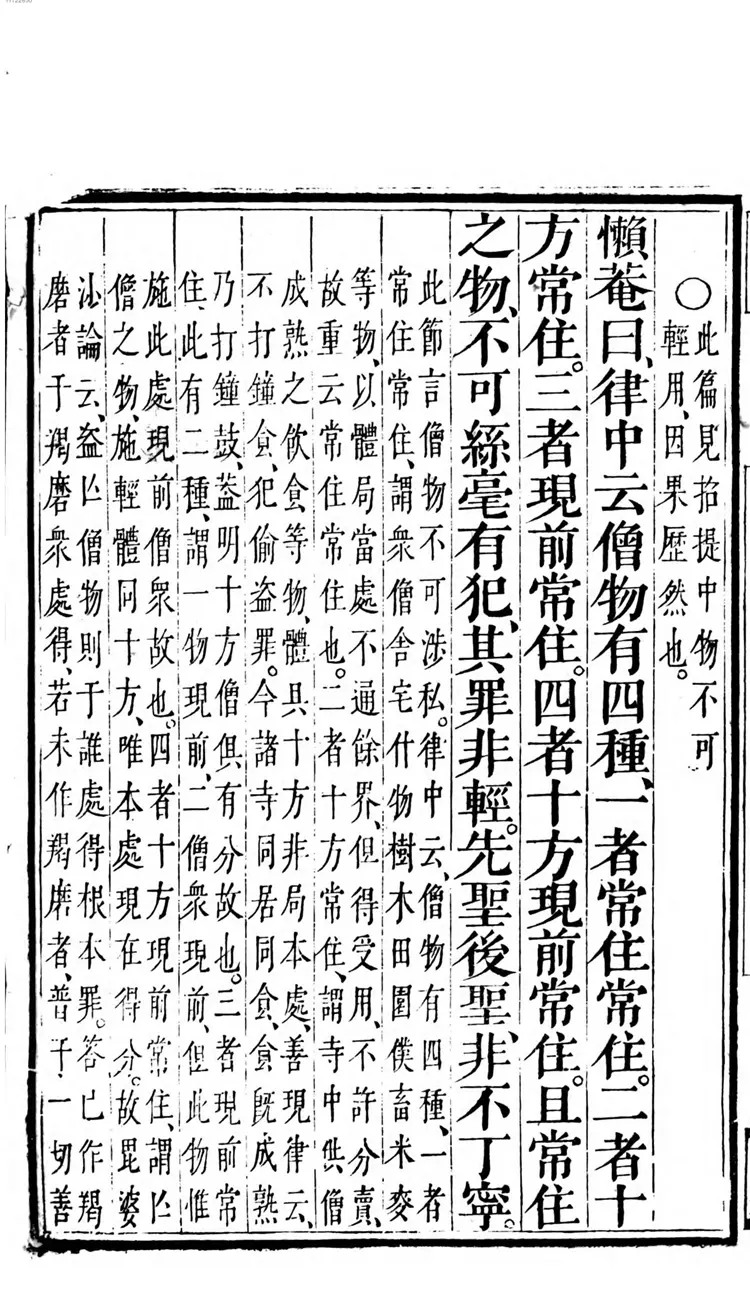 ○此篇見招提中物不可
輕用、因果歷然也。
懶菴曰、律中云僧物有四種、一者常住常住。二者十
方常住。三者現前常住。四者十方現前常住。且常住
之物、不可絲毫有犯、其罪非輕。先聖後聖、非不丁寧。
此節言僧物不可涉私。律中云、僧物有四種、一者
常住常住、謂衆僧舍宅什物樹木田園僕畜米麥
等物、以體局當處不通餘界、但得受用、不許分賣、
故重云常住常住也。二者十方常住、謂寺中供僧
成熟之飲食等物、體具十方非局本處、善現律云、
不打鐘食、犯偷盜罪。今諸寺同居同食、食既成熟
乃打鐘鼓、蓋明十方僧俱有分故也。三者現前常
住、此有二種、謂一物現前、二僧衆現前、但此物惟
施此處現前僧衆故也。四者十方現前常住、謂亾
僧之物、施輕體同十方、唯本處現在得分。故毘婆
沙論云、盜亾僧物則于誰處得根本罪。答已作羯
磨者于羯磨衆處得、若未作羯磨者、普于一切善